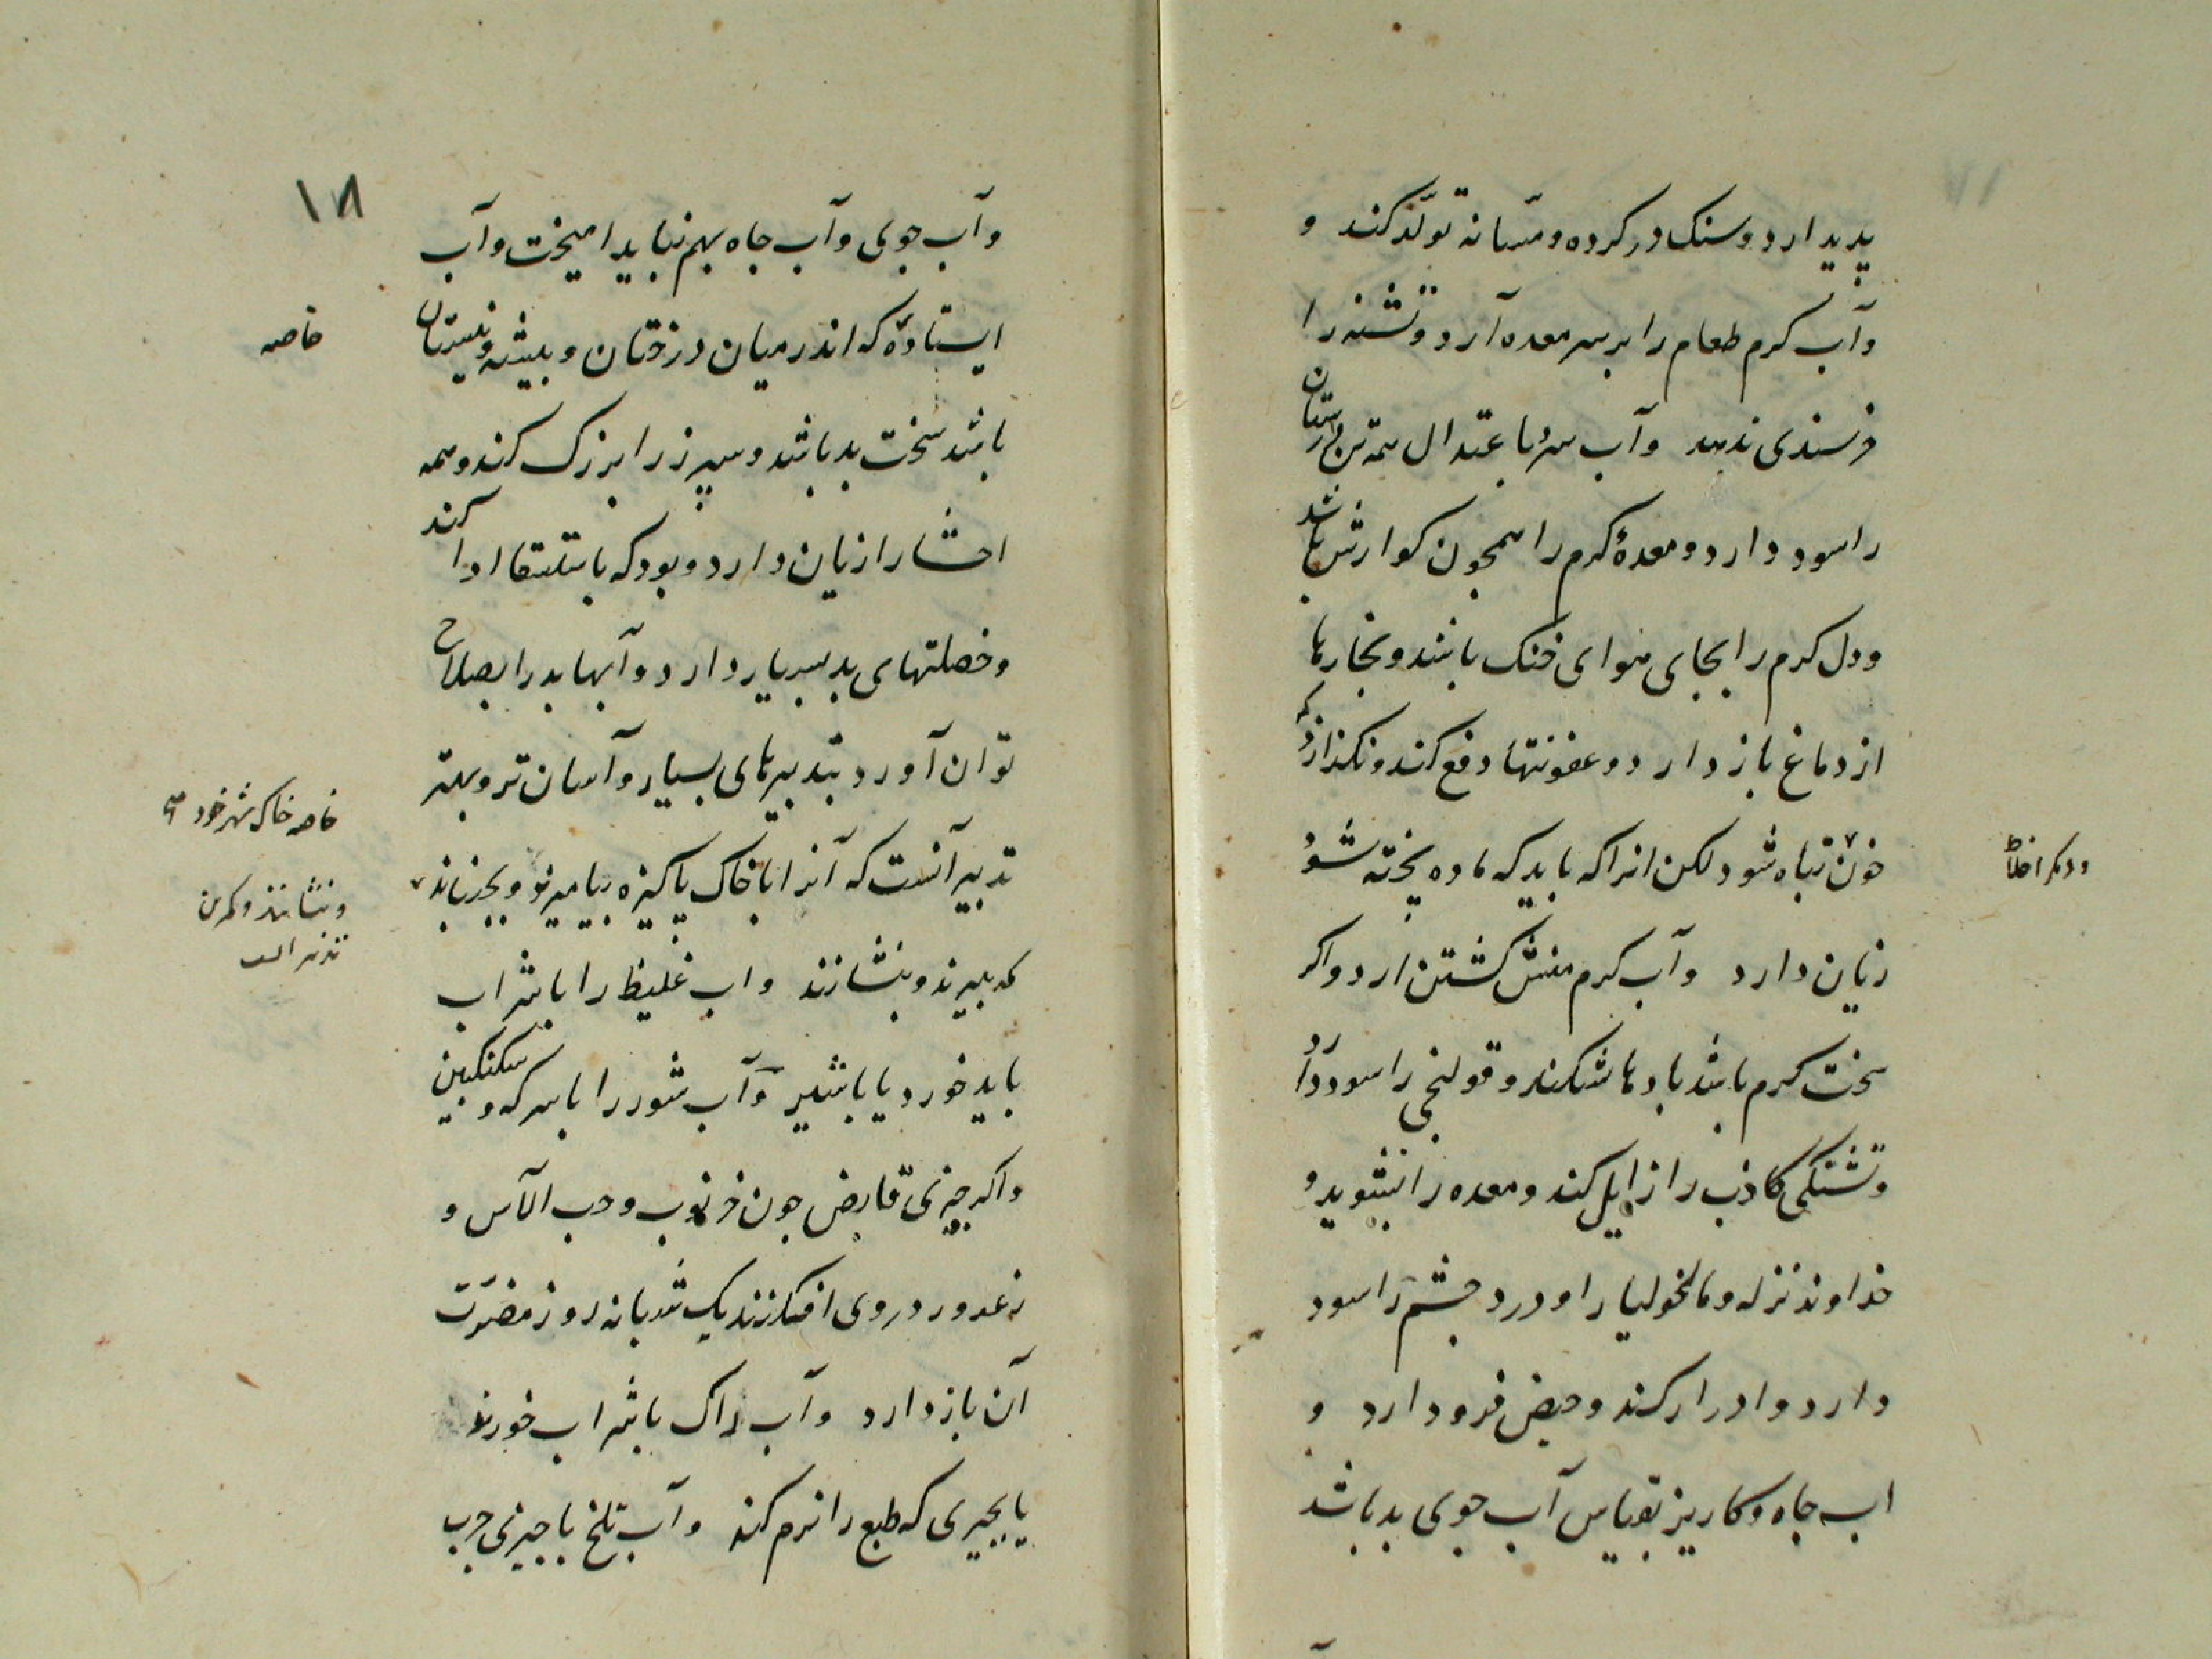 پدید ارد و سنک در کرده و مثانه تولّد کند و
وآب کرم طعام را بر سر معده آرد و تشنه را
خرسندی ندهد وآب سرد باعتدال همه تن درستان
را سود دارد و معدهٔ کرم را همچون کوارش باشد
ودل کرم را بجای هوای خنک باشد و بخارها
از دماغ باز دارد و عفونتها دفع کند و نکذارد که
خون تباه شود لکن انرا که باید که ماده پخته شود
ودیکر اخلاط
زیان دارد وآب کرم منش کشتن ارد واکر
سخت کرم باشد بادها بشکند و قولنج را سود دارد
وتشنکی کاذب را زایل کند و معده را بشوید و
خداوند نزله و مالخولیا را و درد چشم را سود
دارد و ادرار کند و حیض فرود ارد و
اب چاه و کاریز بقیاس آب جوی بد باشد
۱۸
وآب جوی وآب چاه بهم نباید امیخت وآب
ایستادهٔ که اندر میان درختان و بیشه و نیستان
خاصه
باشد سخت بد باشد و سپرز را بزرک کند و همه
احشا را زیان دارد و بود که باستسقا ادا کند
وخصلتهای بد بسیار دارد و آبها بد را بصلاح
توان آورد بتدبیرهای بسیار و آسان تر و بهتر
خاصه خاک شهر خود
تدبیر آنست که آنرا با خاک پاکیزه بیامیزند و بجنبانند
و بنشانند و کمرین
تدبیر است
که بپزند و بنشانند واب غلیظ را با شراب
باید خورد یا باشیر وآب شور را با سرکه و سکنکبین
واکر چیزی قابض چون خرنوب و حب الآس و
زعرور در وی افکنند یک شبانه روز مضرّت
آن باز دارد وآب زاک با شراب خورند
یا بچیزی که طبع را نرم کند وآب تلخ با چیزی چرب